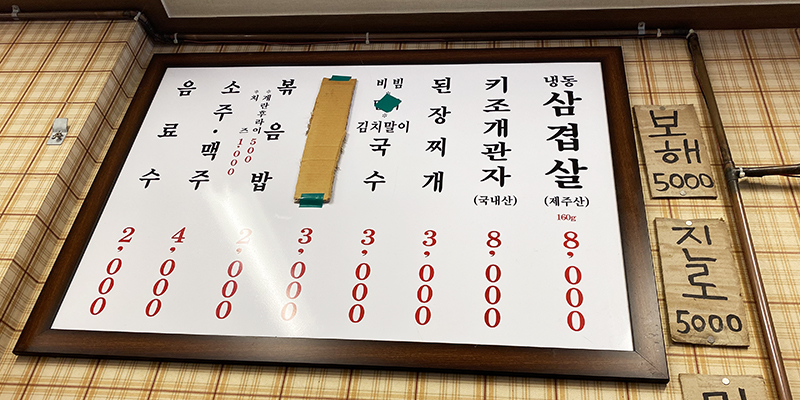 냉동
삼겹살
(제주산)
160g
8,000
키조개관자
(국내산)
8,000
된장찌개
3,000
비빔
김치말이
국수
3,000
3,000
볶음밥
계란후라이 500
치즈 1,000
2,000
소주·맥주
4,000
음료수
2,000
보해
5000
진로
5000